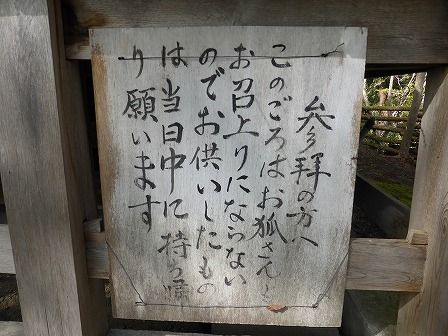 参拝の方へ
このごろはお狐さんも
お召上りにならない
のでお供いしたもの
は当日中に持ち帰
り願います